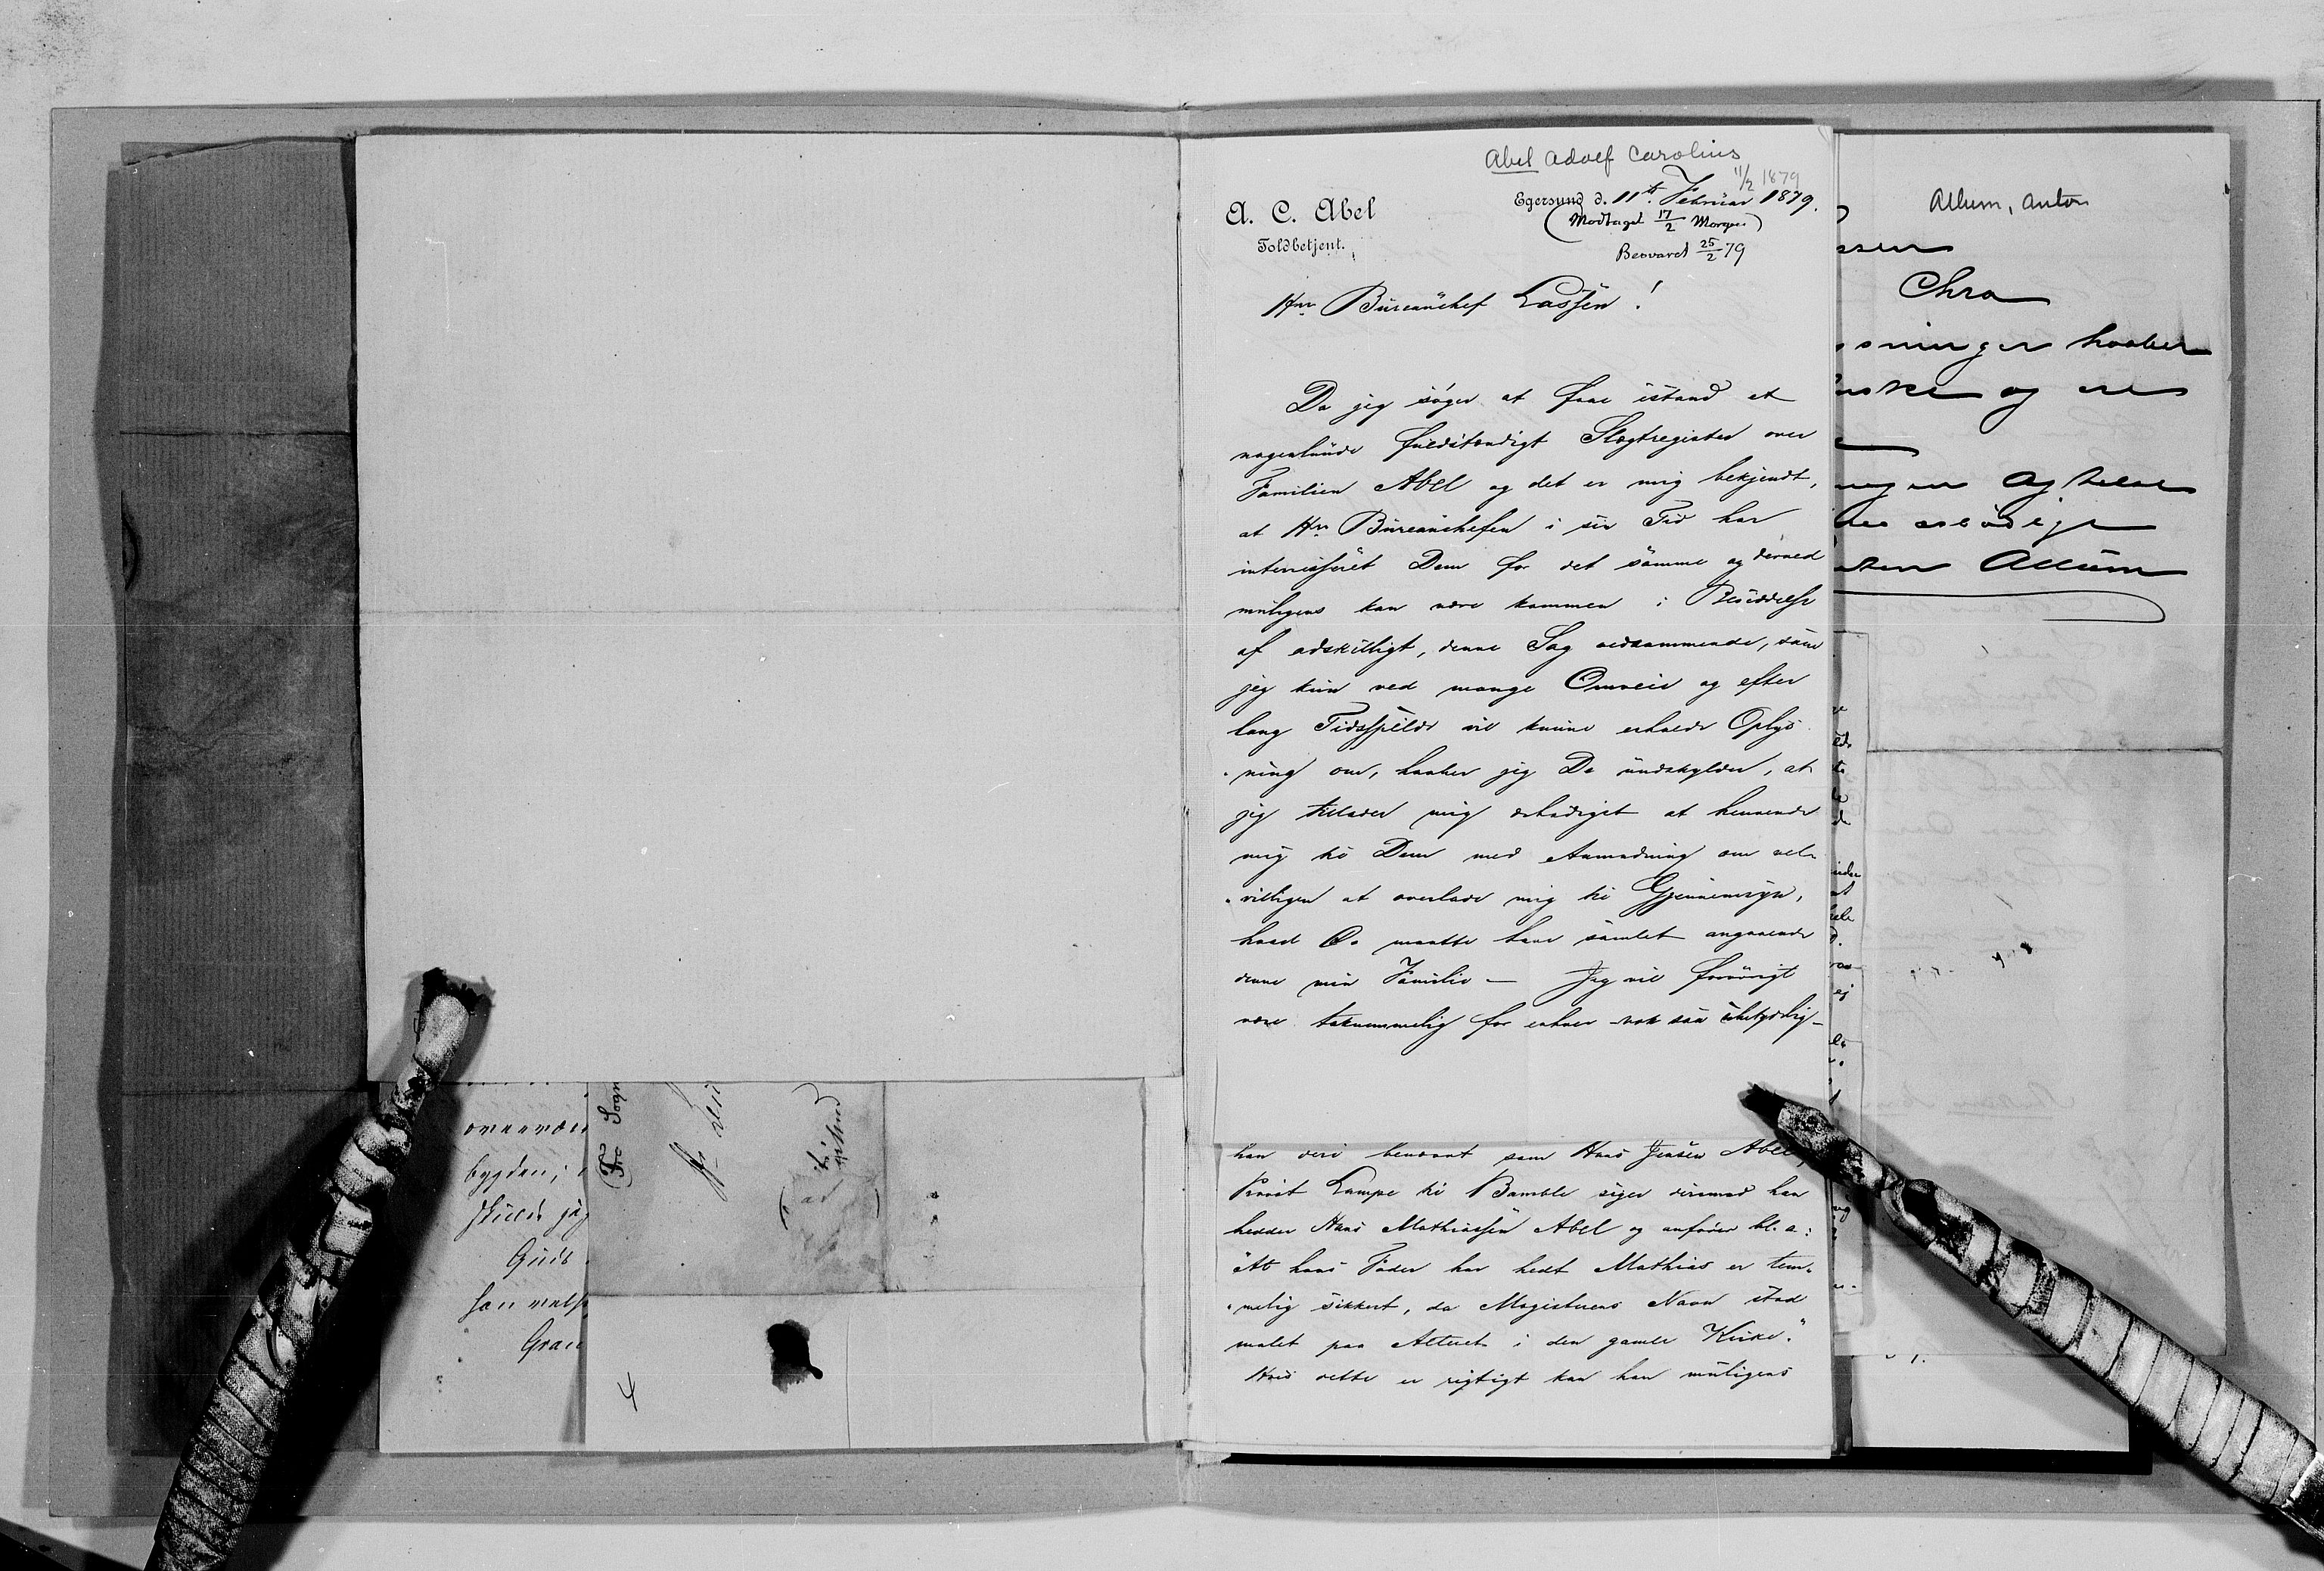 Abel Adolf Carolius
11/2 1879
A. C. Abel
Toldbetjent.
Egersund d. 11te Februar 1879.
(Modtaget 17/2 Morgen)
Besvaret 25/2 79
Hrr Büreauchef Lassen!
Da jeg söger at faae istand et
nogenlunde fuldstændigt Slægtregister over
Familien Abel og det er mig bekjendt,
at Hr. Büreauchefen i sin Tid har
interesseret Dem for det samme og derved
muligens kan være kommen i Besiddelse
af adskilligt, denne Sag vedkommende, som
jeg kun ved mange Omveie og efter
lang Tidsspilde vil kunne erholde Oplys-
ning om, haaber jeg De undskylder, at
jeg tillader mig ærbödigst at henvende
mig til Dem med Anmodning om vel-
villigen at overlade mig til Gjennemsyn,
hvad De maatte have samlet angaaende
denne min Familie — Jeg vil forövrigt
være taknemmelig for enhver nok saa ubetydelig
han deri benævnt som Hans Jensen Abel,
Provst Lampe til Bamble siger derimod han
hedder Hans Mathiassen Abel og anförer bl. a:
"At hans Fader har hedt Mathias er tem-
melig sikkert, da Magisterens Navn stod
malet paa Alteret i den gamle Kirke."
Hvis dette er rigtigt kan han muligens
Allum, Anton
ssen
Chra
sninger haaber
ske og
Agtelse
Allum
bygden;
skulde jeg
Guds
Gran
Fra Sogn
4